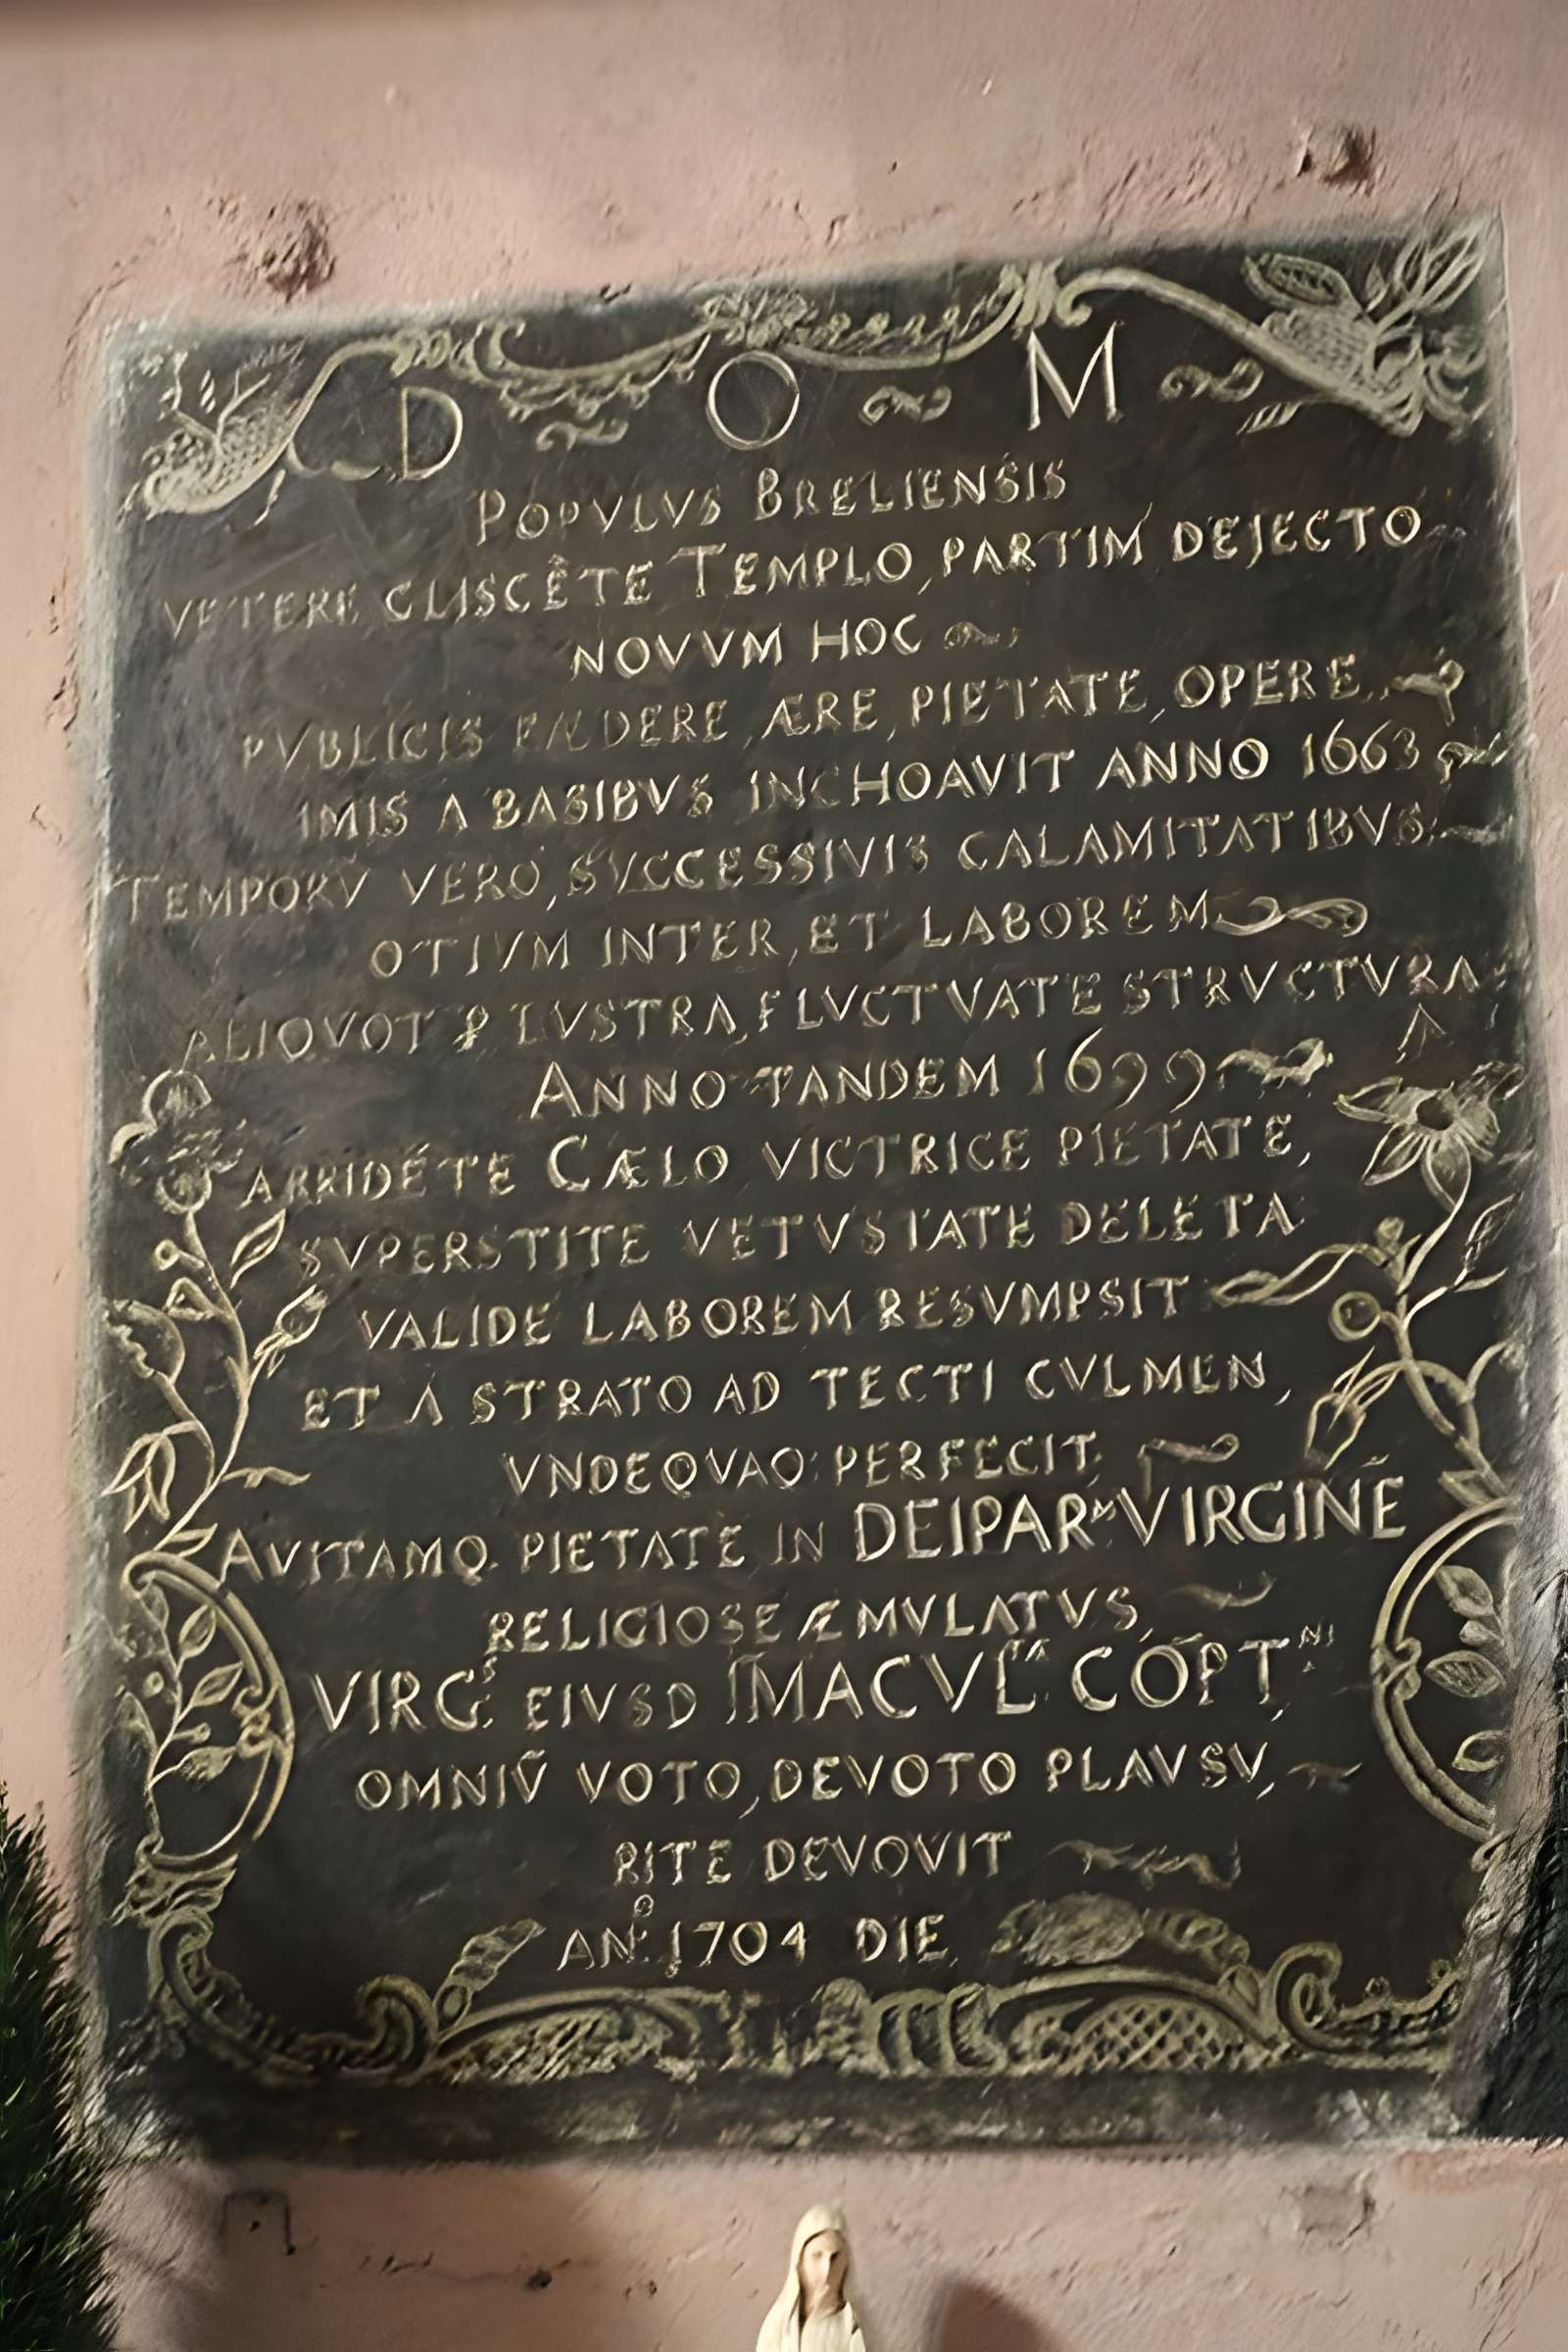 D O M
POPVLVS BRELIENSIS
VETERE GLISCĒTE TEMPLO, PARTIM DEJECTO
NOVVM HOC
PVBLICIS FÆDERE, ÆRE, PIETATE, OPERE,
IMIS A BASIBVS INCHOAVIT ANNO 1663
TEMPORV̄ VERO, SVCCESSIVIS CALAMITATIBVS,
OTIVM INTER, ET LABOREM
ALIQVOT & LVSTRA, FLVCTVATE STRVCTVRA
ANNO TANDEM 1699
ARRIDĒTE CÆLO VICTRICE PIETATE,
SVPERSTITE VETVSTATE DELETA
VALIDE LABOREM RESVMPSIT
ET A STRATO AD TECTI CVLMEN,
VNDEQVAQ: PERFECIT,
AVITAMQ. PIETATĒ IN DEIPARᴬᴹ VIRGINĒ
RELIGIOSE ÆMVLATVS,
VIRGˢ. EIVSD IMACVLᵀᴬ CŌPTᴺᴵ,
OMNIV̄ VOTO, DEVOTO PLAVSV,
RITE DEVOVIT
ANº. 1704 DIE